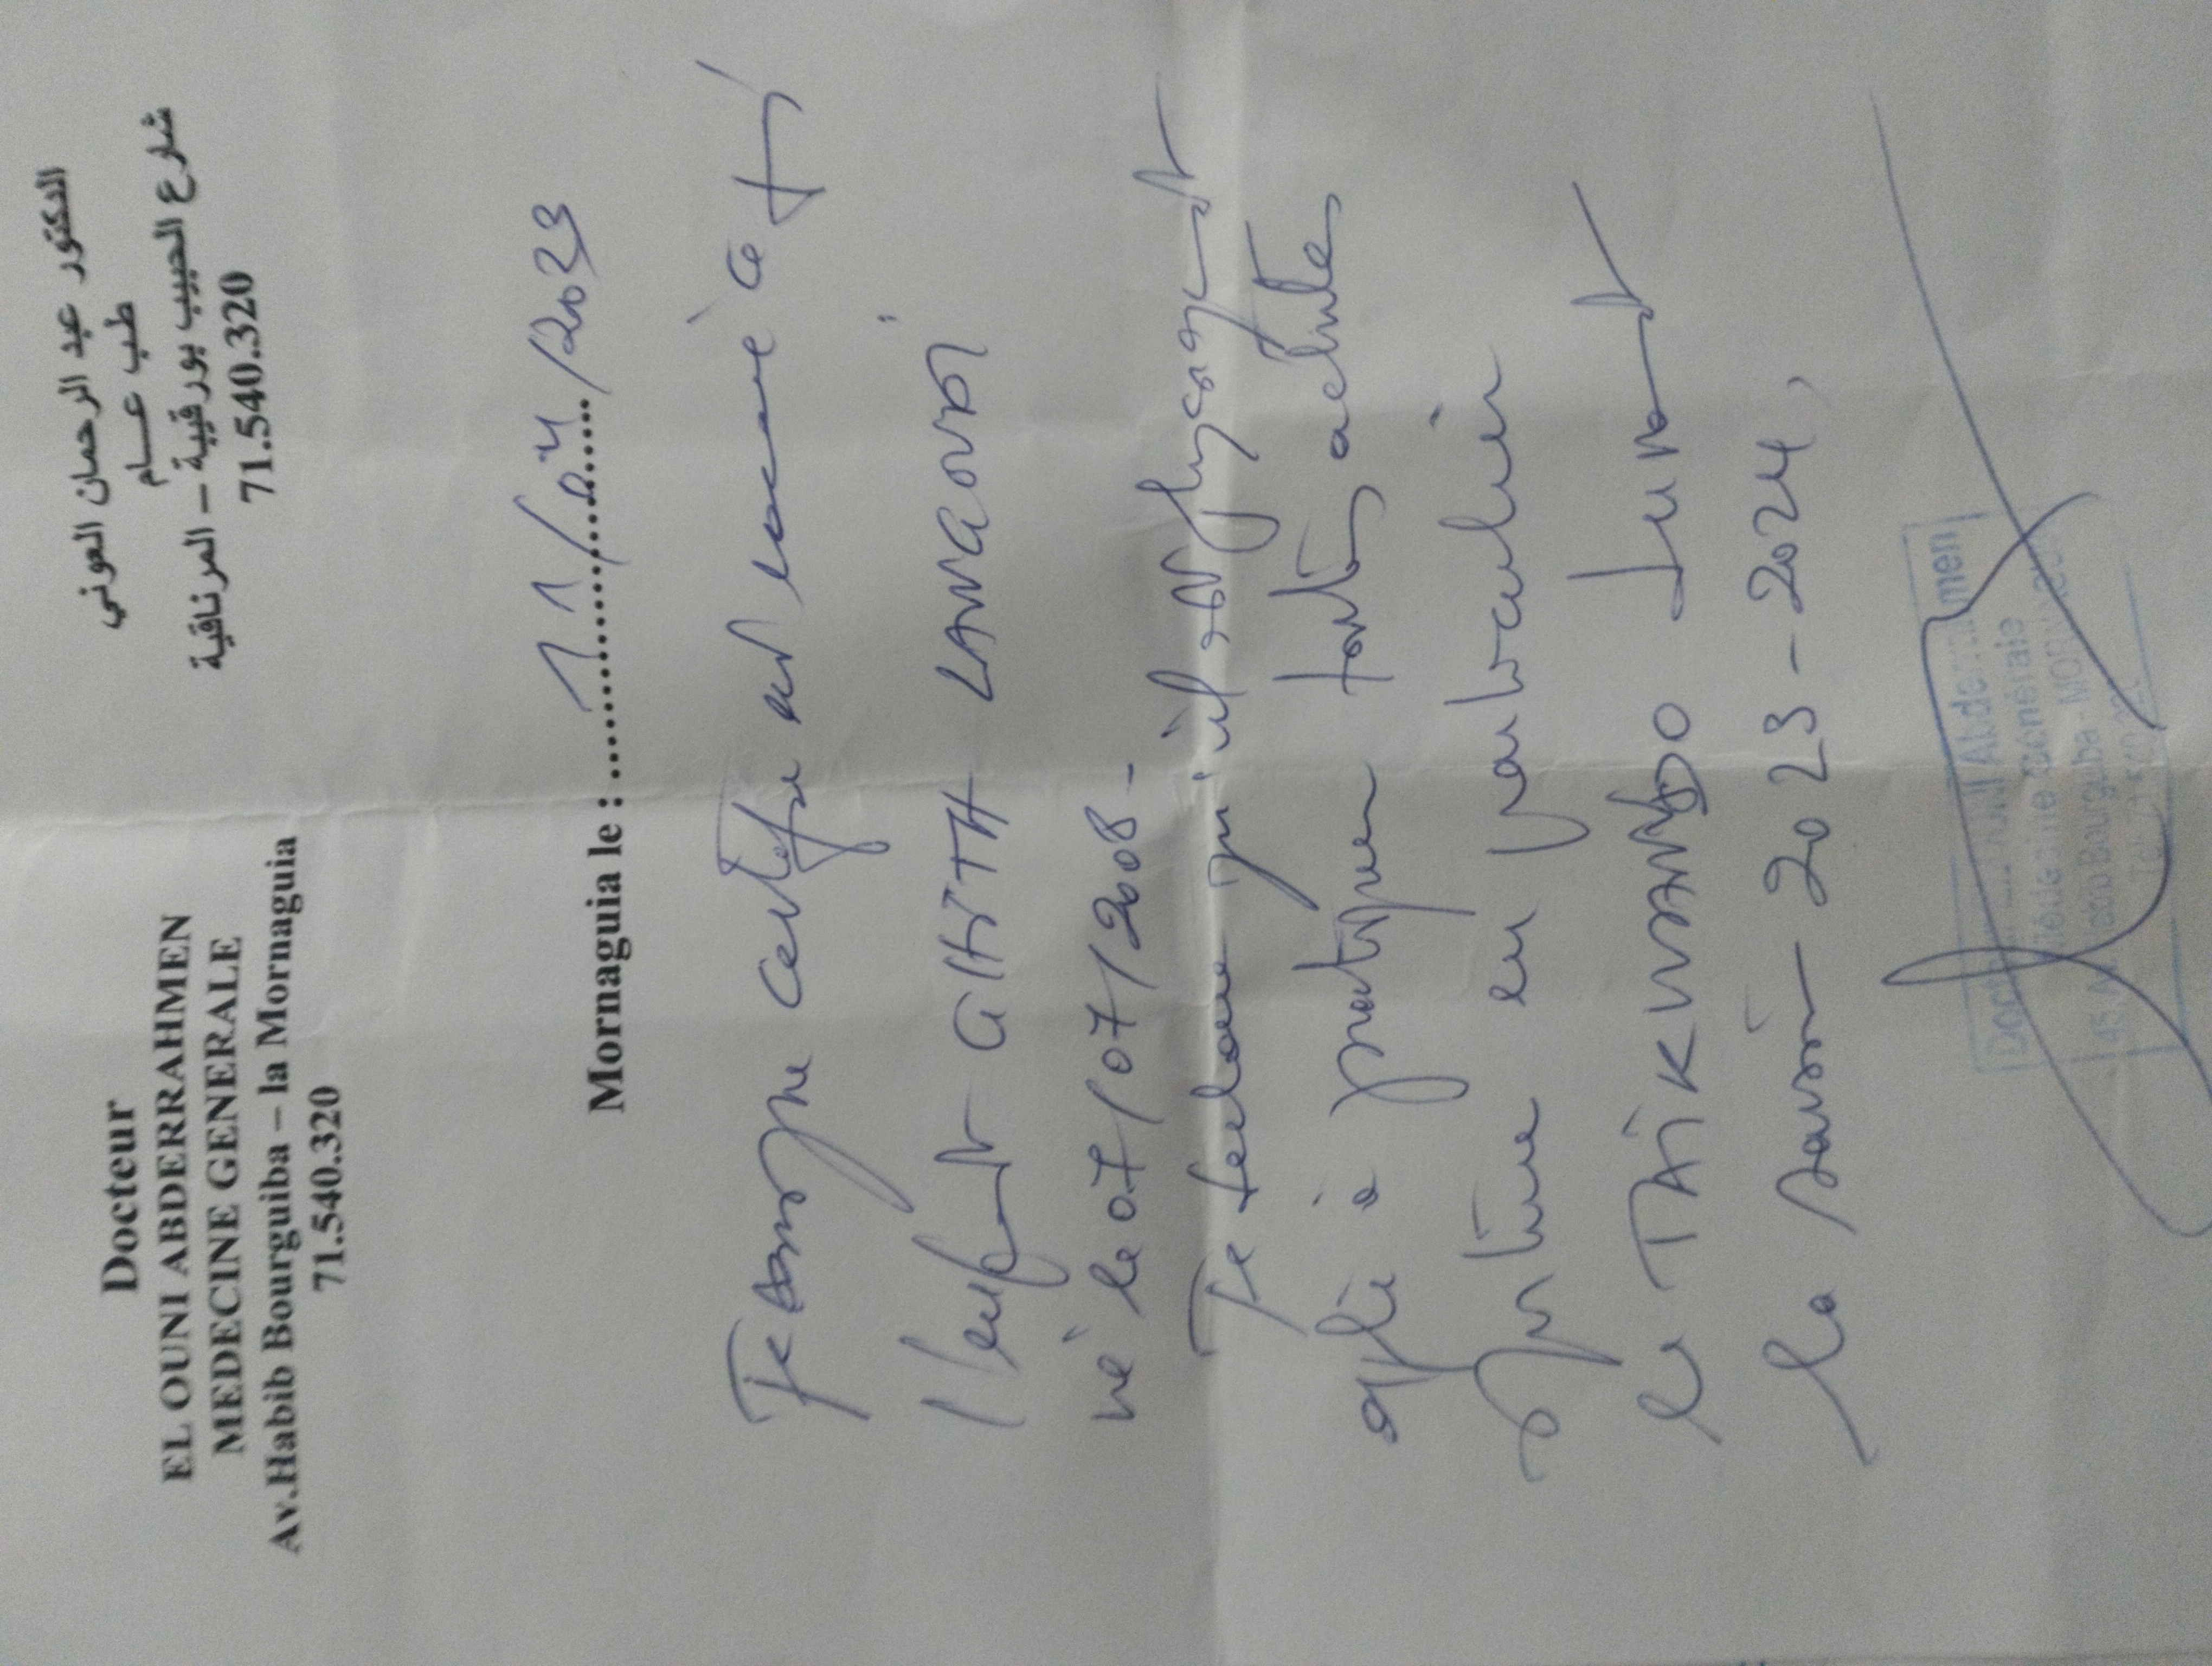 Docteur
EL OUNI ABDERRAHMEN
MEDECINE GENERALE
Av.Habib Bourguiba – la Mornaguia
71.540.320
الدكتور عبد الرحمان العوني
طب عـــام
شارع الحبيب بورقيبة – المرناقية
71.540.320
Mornaguia le : 11/04/2023
Je certifie avoir examiné ce
l'enfant GHITH
né le 07/07/2008 -
Je declare qu'il est physiquement
apte à pratiquer toutes activités
sportive en particulier
le TAiKWANDO durant
la saison 2023-2024,
Docteur Abderrahmen
Médecine Générale
45, Av. Habib Bourguiba - MORNAGUIA